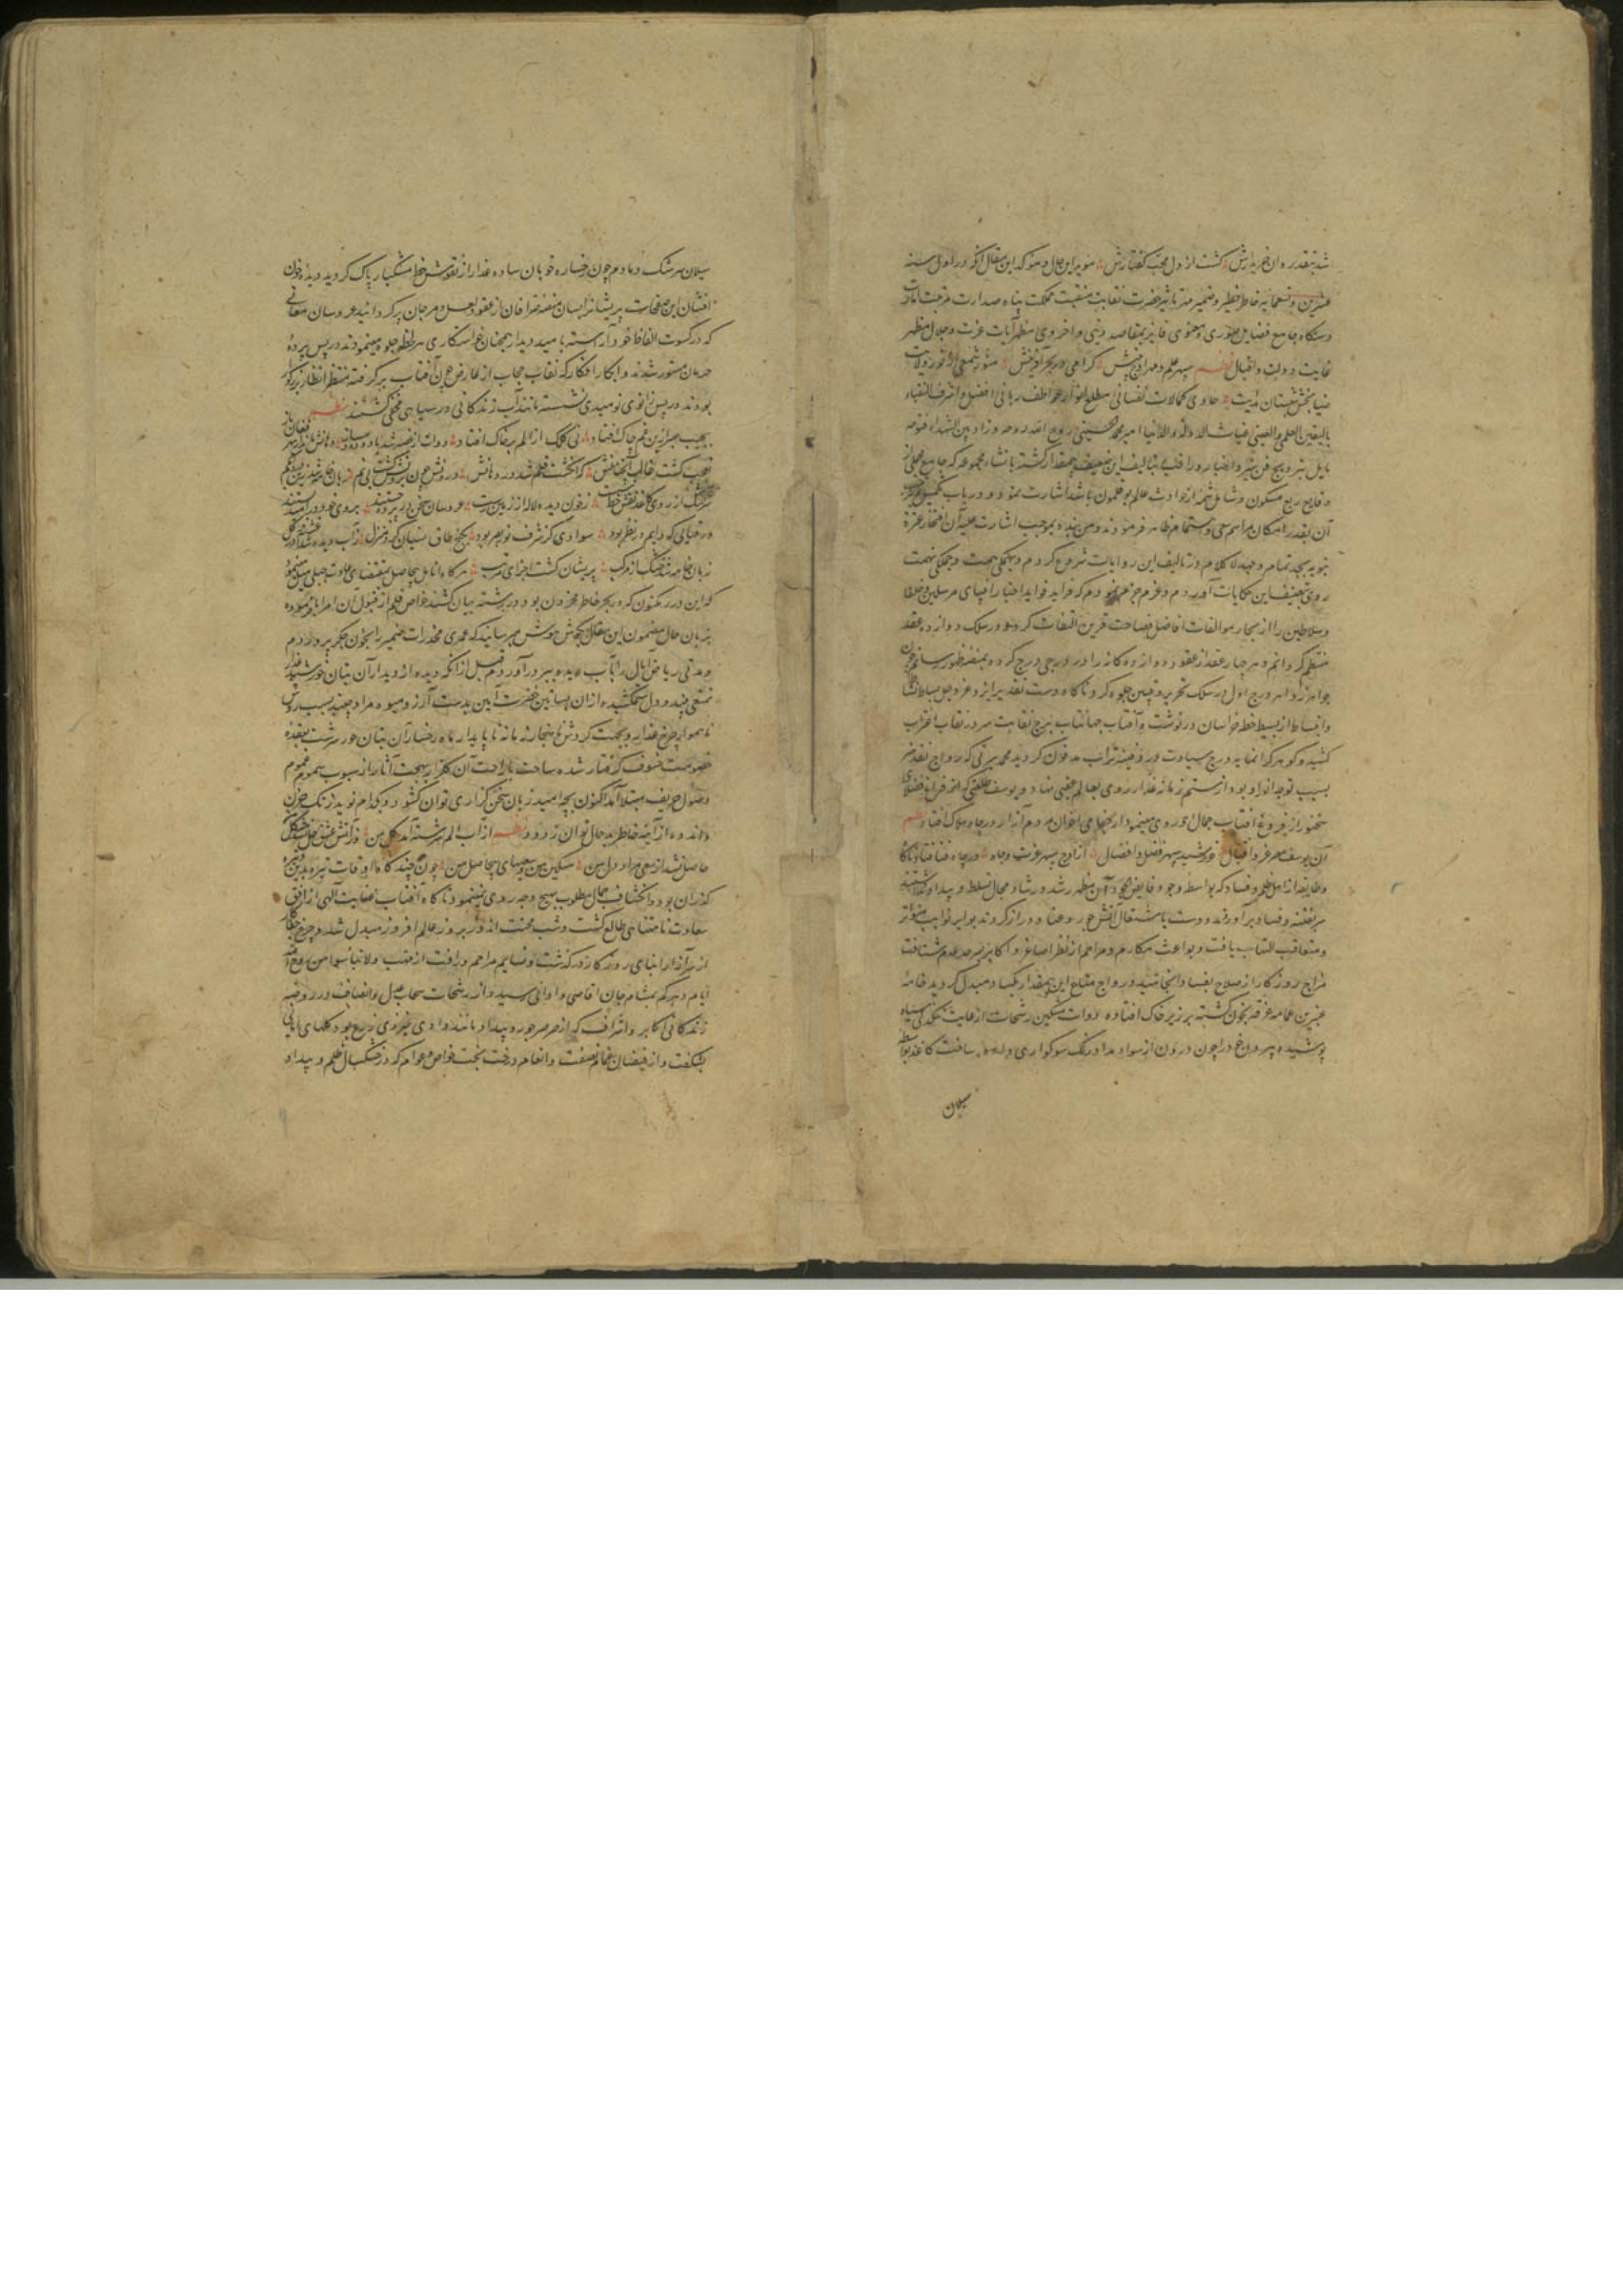 شد بنقد روان خریدارش گشت از دل محب گفتارش مؤید این حال و مؤکد این مقال آنکه در اول سنه
عشرین و تسعمایه خاطر خطیر و ضمیر مهر تأثیر حضرت نقابت منقبت مملکت پناه صدارت مرتبت امارت
دستگاه جامع فضایل صوری و معنوی فایز بمقاصد دینی و اخروی مظهر آیات عزت و جلال منظور
عنایت دولت و اقبال نظم سپهر علم و مهر اوج بینش گرامی در بحر آفرینش منور شمعی از نور ولایت
ضیابخش شبستان هدایت حاوی کمالات نفسانی مطلع انوار عواطف ربانی افضل و اشرف النقباء
بالیقین العلمی والعینی غیاث الدوله والدنیا امیر محمد الحسینی روح الله روحه وزاد بین الشهداء فتوحه
مایل بترویج فن سیر و اخبار بود راقم بی‌مقدار گشته بانشاء مجموعه که جامع مجملی از
وقایع ربع مسکون و شامل شمه از حوادث عالم بوقلمون باشد اشارت نمود و در باب تکمیل
آن بقدر امکان مراسم سعی و اهتمام ظاهر فرمودند و من بنده بموجب اشارت علیه آن افتخار عترة
نبویه بجد تمام و جهد لا کلام در تالیف این روایات شروع کردم و بهمگی همت و جملگی نهمت
روی بتصنیف این حکایات آوردم و عزم جزم نمودم که فراید فواید اخبار انبیای مرسلین و خلفا
و سلاطین را از بحار مؤلفات افاضل فصاحت قرین التقاط کرده در سلک دوازده عقد
منتظم گردانم و هر چهار عقد از عقود دوازده کانه را در درجی درج کرده بمنصه ظهور رسانم چون
جواهر زواهر درج اول در سلک تحریر و تبیین جلوه گر شد ناگاه دست تقدیر ایزد عز و جل بساط نشاط
و انبساط از بسیط خطه خراسان درنوشت و آفتاب جهانتاب برج نقابت سر در نقاب اغتراب
کشید و گوهر گرانمایه درج سیادت در دفینه تراب مدفون گردید محمد میرتی که رواج نقد هنر
بسبب توجه او بود از ستم زمانه غدار روی بعالم عقبی نهاد و یوسف طلعتی که از فر او فضلای
سخنور از فروغ آفتاب جمال او روی مینمود از بیچامی اخوان مردم آزار در چاه هلاک افتاد نظم
آن یوسف مصر عز و اقبال خورشید سپهر فضل و افضال از اوج سپهر عزت و جاه در چاه فنا فتاد ناگاه
و طایفه از اهل ظلم و فساد که بواسطه وجود شد و رشاد مجال تسلط و بیداد نداشتند
سر بفتنه و فساد برآوردند و دست باشتعال آتش جور و عناد دراز کردند نوایر نوایب متواتر
و متعاقب التهاب یافت و بواعث مکارم و مراحم از نظر اصاغر و اکابر بسرحد عدم شتافت
مزاج روزگار از صلاح بفساد انجامید و رواج متاع این بیمقدار بکساد مبدل گردید خامه
عنبرین عمامه غرقه بخون گشته بر زبر خاک افتاده دوات مشکین رشحات از غایت تنگدلی سیاه
پوشیده بیرون خود را چون درون از سواد مداد رنگ سوکواری داده ساخت کاغذ بواسطه
سیلان
سیلان سرشک دمادم چون رخساره خوبان ساده عذار از نقوش خط مشکبار پاک گردید و دیده خون
افشان این صفحات پریشانرا بسان منصه زعفران از عقود لعل و مرجان پر گردانید عروسان معانی
که در کسوت الفاظ خود آراسته بامید دیدار سخنان خواستگاری هر لحظه جلوه مینمودند در پس پرده
حرمان مستور شدند و ابکار افکار که نقاب حجاب از عارض چون آفتاب برگرفته منتظر انظار بزرگوار
بودند در پس زانوی نومیدی نشسته مانند آب زندگانی در سیاهی مخفی گشتند نظم
بجیب هنر از این غم چاک افتاد نی کلک از الم بر خاک افتاد دوات از غصه شد با دود
عجب گشت قالب که انگشت قلم شد در دهانش
سرشک از روی کاغذ نقش خط شست ز خون دیده لاله از زمین رست عروسان سخن در پرده
در خیالی که دایم در نظر بود سوادی کز شرف نور بصر بود بکنج طاق نسیان کرد منزل ز آب دیده
زبان خامه شد خشک از مرکب پریشان گشت اجزای مرتب هرگاه انامل بیحاصل بمقتضای عادت جبلی میل مینمود
که این درر مکنون که در بحر خاطر محزون بود در رشته بیان کشد خواص قلم از قبول آن امر ابا نموده
بزبان حال مضمون این مقال بگوش هوش میرسانید که عمری مخدرات ضمیر را بخون جگر پروردم
و مدتی ریاض آمال را بآب دیده ببر درآوردم قبل از آنکه دیده از دیدار آن بتان خورشید عذار
تمتعی بیند و دل ستمکشیده از آن بساتین حضرت آیین بدست آرزو میوه مراد چیند بسبب روش
ناهموار چرخ غدار و بجهت گردش ناهنجار زمانه ناپایدار ماه رخسار آن بتان حور سرشت بعقده
خصومت خسوف گرفتار شده ساحت باراحت آن گلزار بهجت آثار از هبوب سموم غموم
وصول خریف مبتلا آمد اکنون بچه امید زبان سخن گزاری توان گشود و بکدام نوید زنک حزن
و اندوه از آینه خاطر بدحال توان زدود نظم از آب الم سرشته آمد گل من وز آتش عشق
حاصل نشد از سعی مراد دل من مسکین من و سعیهای بیحاصل من چون چند گاه اوقات تیره
گذران بود و انکشاف جمال مطلوب بهیچ وجه روی نمینمود ناگاه آفتاب عنایت الهی از افق
سعادت نامتناهی طالع گشت و شب محنت اندوز بروز عالم افروز مبدل شد و چرخ جفاکار
از سر آزار ابنای روزگار درگذشت و نسایم مراحم و رأفت از مهب ولا تیأسوا من روح الله
ایام دیگر بمشام جان اقاصی و ادانی رسید و از رشحات سحاب عدل و انصاف در روضه
زندگانی اکابر و اشراف که از صرصر جور و بیداد مانند وادی غیر ذی زرع بود گلهای امانی
بشگفت و از فیضان غمام نصفت و انعام درخت بخت خواص و عوام که در خشکسال ظلم و بیداد